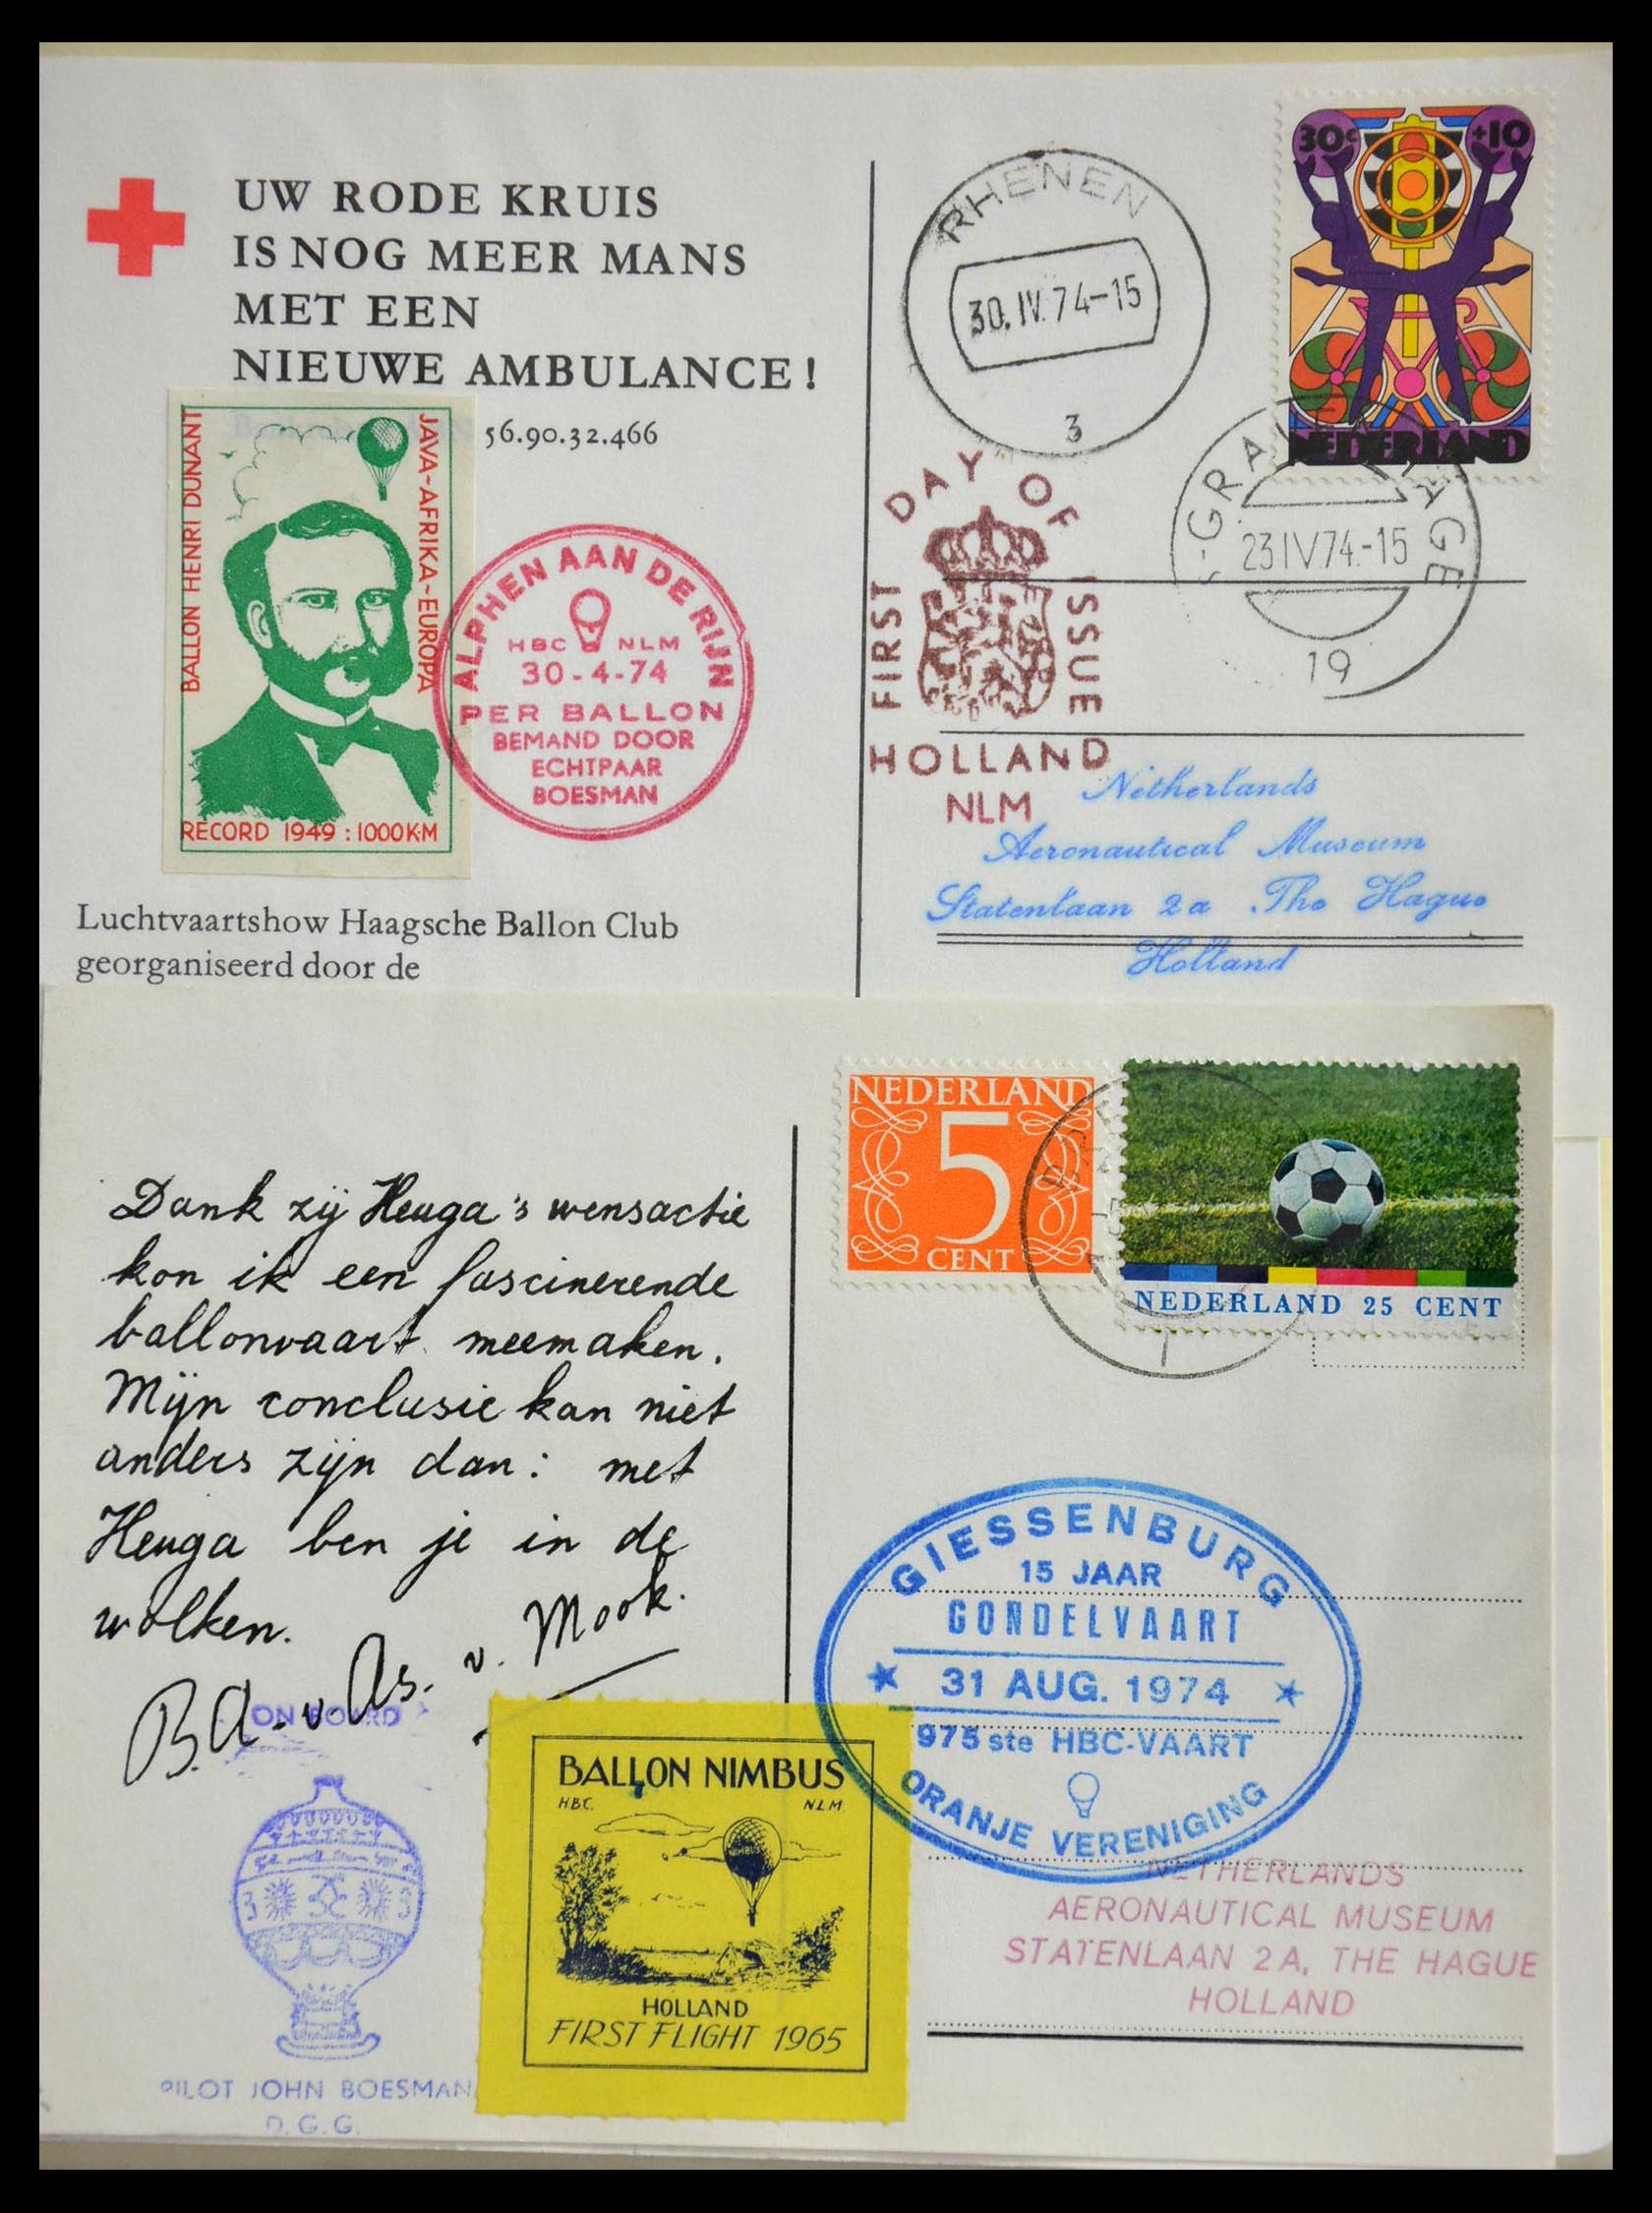 UW RODE KRUIS
IS NOG MEER MANS
MET EEN
NIEUWE AMBULANCE!
56.90.32.466
BALLON HENRI DUNANT
JAVA-AFRIKA-EUROPA
RECORD 1949 : 1000 K.M
ALPHEN AAN DE RIJN
HBC NLM
30-4-74
PER BALLON
BEMAND DOOR
ECHTPAAR
BOESMAN
Luchtvaartshow Haagsche Ballon Club
georganiseerd door de
RHENEN
30.IV.74-15
3
30c +10
NEDERLAND
23 IV 74-15
19
FIRST DAY OF ISSUE
HOLLAND
NLM
Netherlands
Aeronautical Museum
Statenlaan 2a The Hague
Holland
Dank zij Heuga's wensactie
kon ik een fascinerende
ballonvaart meemaken.
Mijn conclusie kan niet
anders zijn dan: met
Heuga ben je in de
wolken.
v. Mook.
ON BOARD
PILOT JOHN BOESMAN
D.G.G.
NEDERLAND
5
CENT
NEDERLAND 25 CENT
1
GIESSENBURG
15 JAAR
GONDELVAART
31 AUG. 1974
975 ste HBC-VAART
ORANJE VERENIGING
BALLON NIMBUS
HBC. NLM
NIMBUS
HOLLAND
FIRST FLIGHT 1965
NETHERLANDS
AERONAUTICAL MUSEUM
STATENLAAN 2 A, THE HAGUE
HOLLAND